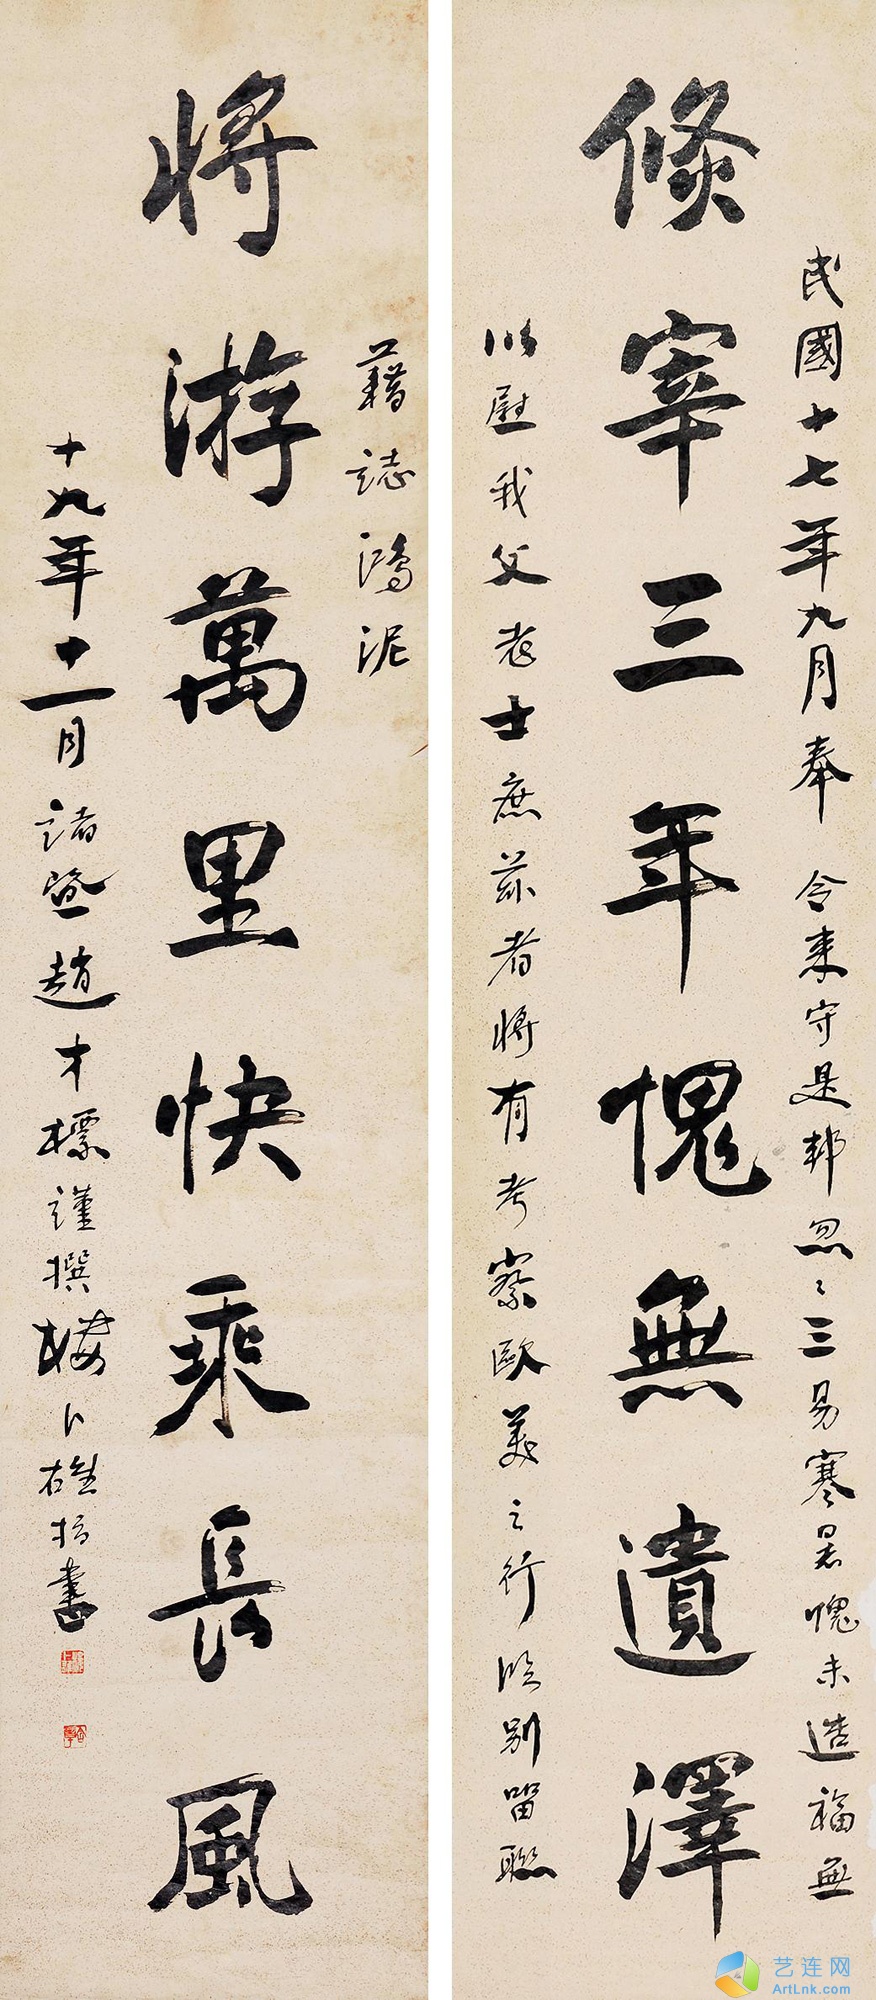 民國十七年九月奉 令來守是邦忽〻三易寒暑愧未造福無
倏宰三年愧無遺澤
以慰我父老士庶茲者將有考察歐美之行臨別留聯
藉誌鴻泥
將游萬里快乘長風
十九年十一月諸暨趙才標謹撰樓卜瀍指書
艺连网
ArtLnk.com